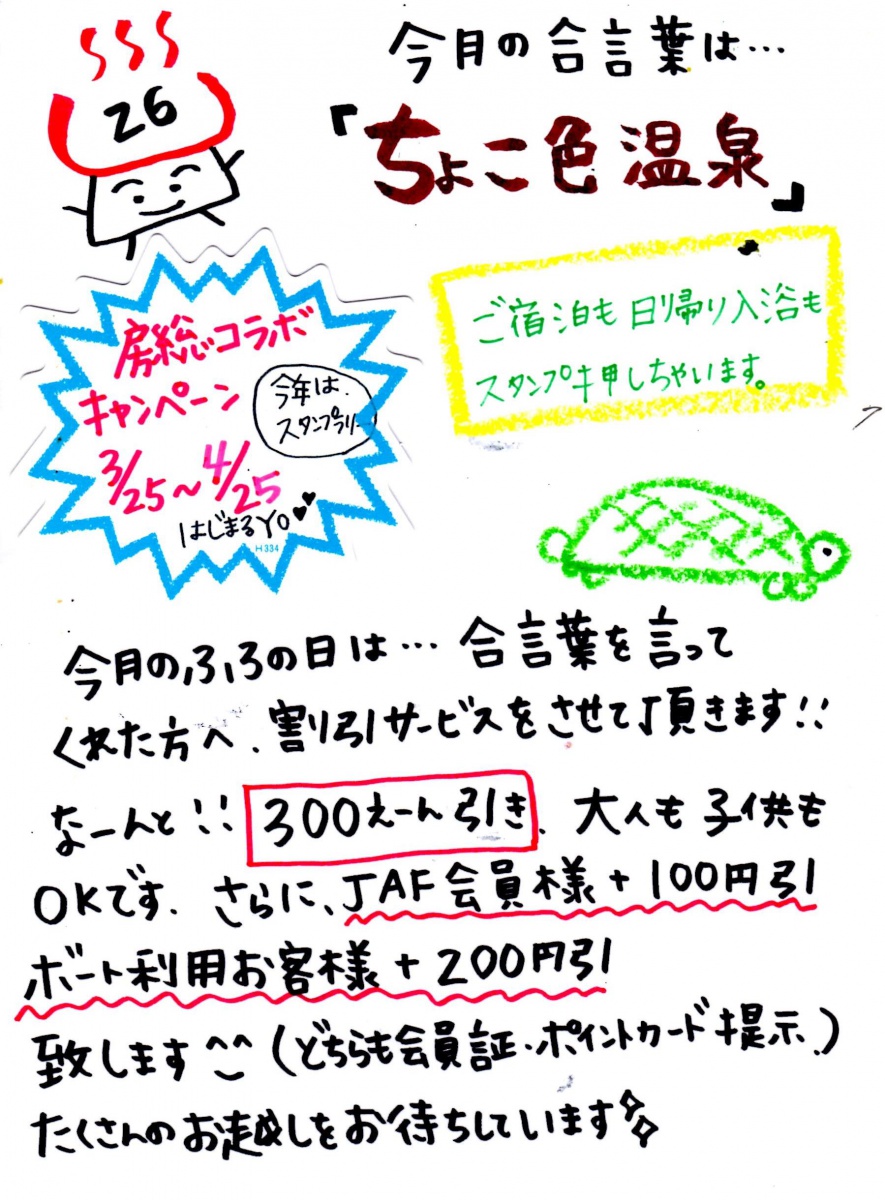 今月の合言葉は…
26
「ちょこ色温泉」
ご宿泊も日帰り入浴も
スタンプ押しちゃいます。
房総コラボ
キャンペーン
今年は
スタンプラリー
3/25～4/25
はじまるYO♥♥
H-334
今月のふろの日は…合言葉を言って
くれた方へ、割り引サービスをさせて頂きます!!
なーんと!!300えーん引き、大人も子供も
OKです、さらに、JAF会員様+100円引
ボート利用お客様+200円引
致します^^(どちらも会員証・ポイントカード提示)
たくさんのお越しをお待ちしています